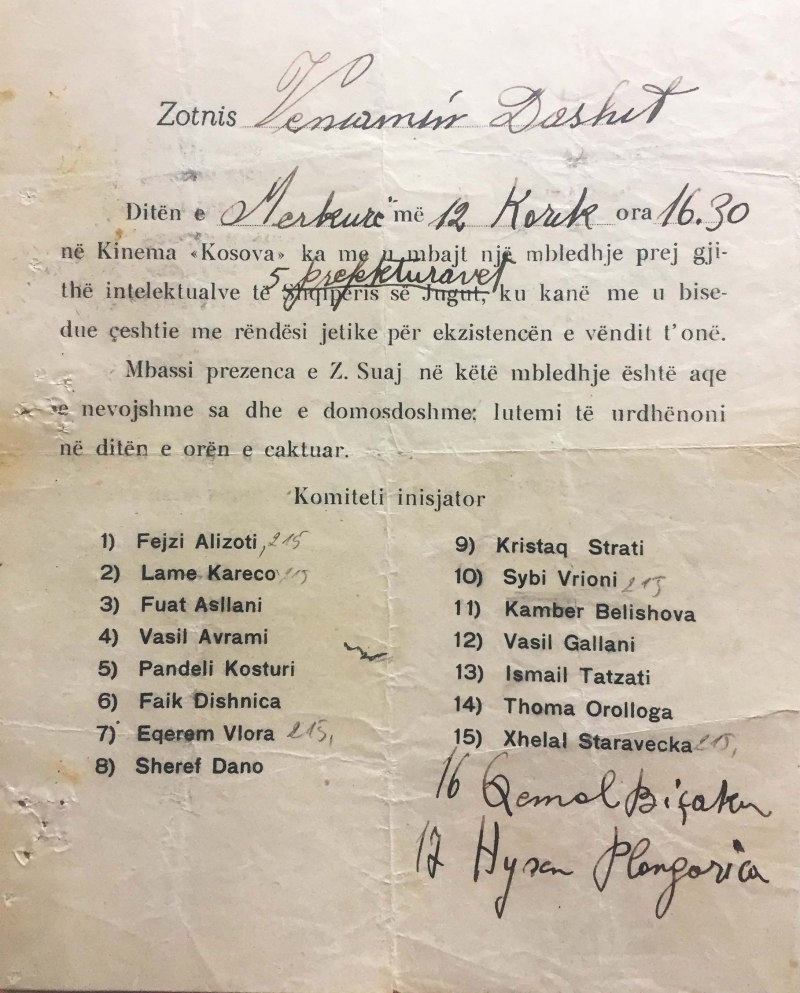 Zotnis Veniamin Dashit
Ditën e Merkurë më 12 Korrik ora 16.30
në Kinema «Kosova» ka me u mbajt një mbledhje prej gji-
5 prefekturavet
thë intelektualve të Shqipëris së Jugut, ku kanë me u bise-
due çeshtie me rëndësi jetike për ekzistencën e vëndit t'onë.
Mbassi prezenca e Z. Suaj në këtë mbledhje është aqe
e nevojshme sa dhe e domosdoshme; lutemi të urdhënoni
në ditën e orën e caktuar.
Komiteti inisjator
1) Fejzi Alizoti, 215
2) Lame Kareco 215
3) Fuat Asllani
4) Vasil Avrami
5) Pandeli Kosturi
6) Faik Dishnica
7) Eqerem Vlora 215,
8) Sheref Dano
9) Kristaq Strati
10) Sybi Vrioni 215
11) Kamber Belishova
12) Vasil Gallani
13) Ismail Tatzati
14) Thoma Orolloga
15) Xhelal Staravecka 215,
16 Qemal Biçaku
17 Hysen Plangarica